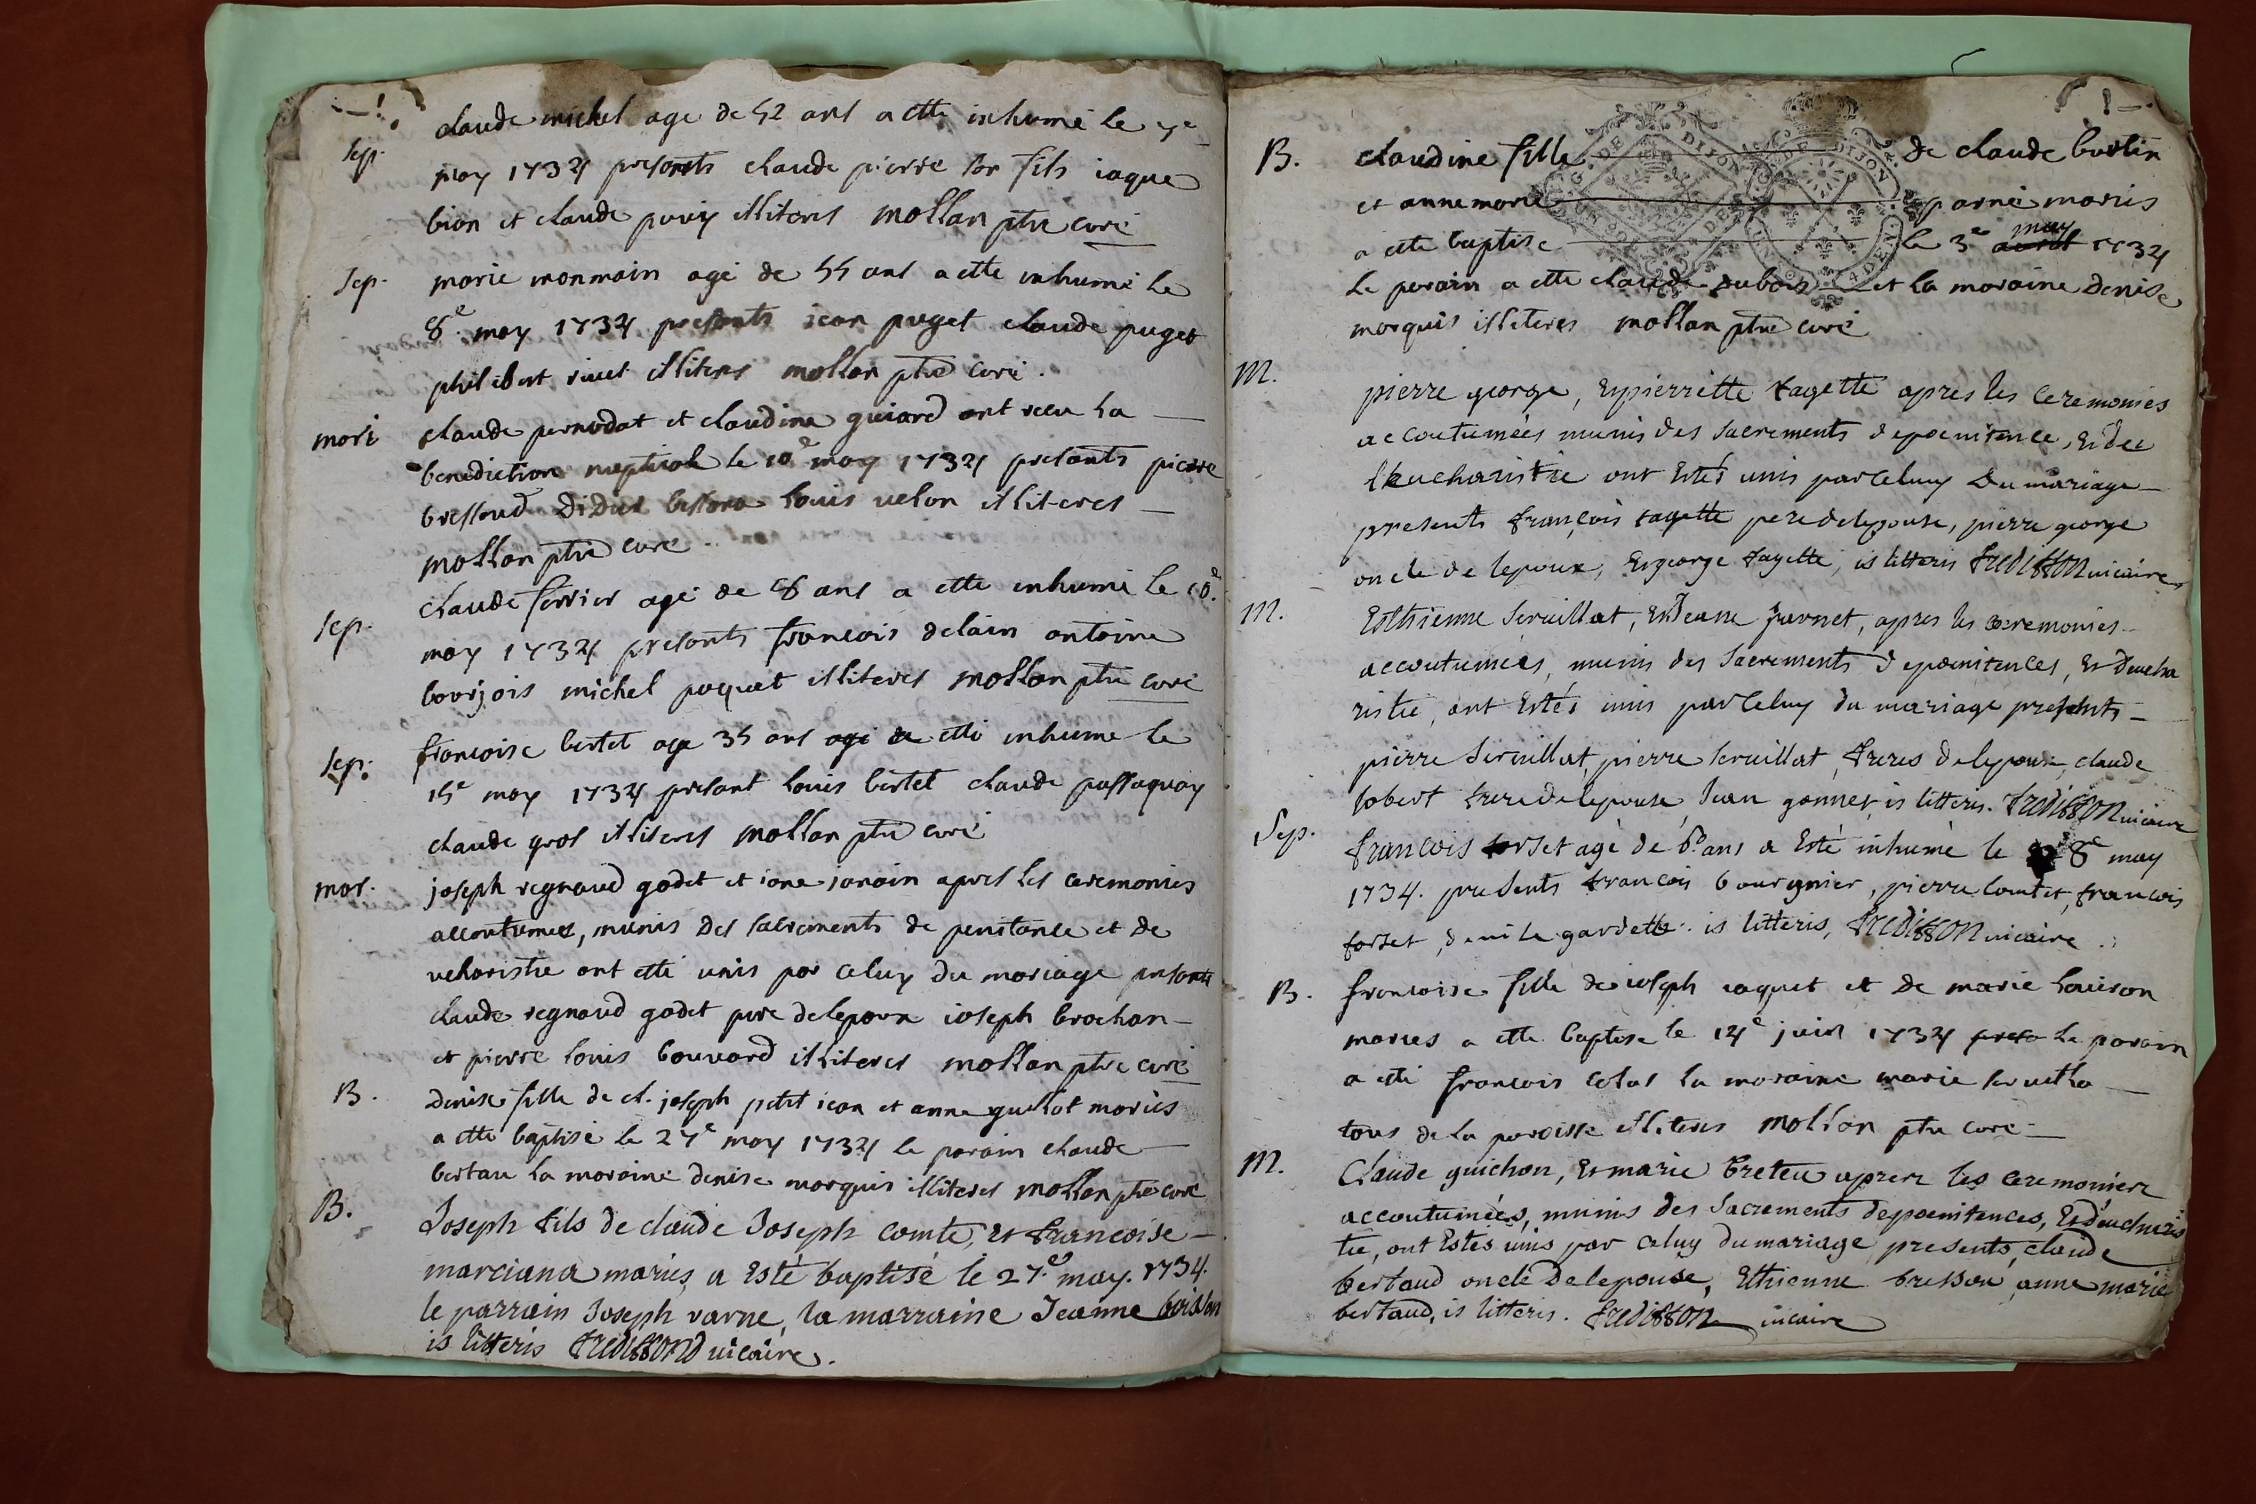 Sep. claude michel age de 52 ans a ette inhumé le 7e
may 1734 presants claude pierre son fils iaque
bion et claude illiteres mollan ptre curé
Sep. marie monmain agé de 55 ans a ette inhumé le
8e may 1734 presants jean puget claude puget
philibert rivet illiteres mollan ptre curé.
mari claude pernodat et claudine guiard ont receu la
benediction nuptiale le 10e may 1734 presants pierre
bressoud didier louis velon illiteres
mollan ptre curé.
Sep. claude ferrier agé de 8 ans a ette inhumé le 10e
may 1734 presants francois delain antoine
bourjois michel paquet illiteres mollan ptre curé
Sep. francoise bertet age 35 ans agé a etté inhumé le
15e may 1734 presant louis bertet claude passaquay
claude gros illiteres mollan ptre curé
mar. joseph regnaud godet et iane janain apres les ceremonies
accoutumees, munis des sacrements de penitance et de
ucharistie ont etté unis par celuy du mariage presants
claude regnaud godet pere delepoux ioseph brochan
et pierre louis bouvard illiteres mollan ptre curé
B. denise fille de cl. joseph petit jean et anne guillot mariés
a etté baptisé le 27e may 1734 le parain claude
bertau la maraine denise marquis illiteres mollan ptre curé
B. Joseph fils de claude Joseph comte, et francoise
marciana mariés, a Esté baptisé le 27.e may. 1734.
le parrain Joseph varne, la marraine Jeanne boisson
is litteris fredisson vicaire.
B. claudine fille de claude bertin
et anne marie parné mariés
a ette baptise le 3e avril may 1734
le parain a ette claude dubois et la maraine denise
marquis illiteres mollan ptre curé
M. pierre george, Et pierrette fagette apres les ceremonies
accoutumées munis des Sacrements de poenitence, Et de
l'Eucharistie ont Estés unis par celuy Du mariage
presents françois fagette pere de lepouse, pierre george
oncle de lepoux, Et george fayette, is litteris fredisson vicaire
M. Esthienne Servillat, Et Jeanne, apres les ceremonies
accoutumées, munis des Sacrements de poenitences, Et deucha
ristie, ont Estés unis par Celuy du mariage presents
pierre Servillat, pierre Servillat, freres de lepoux, claude
Jobert frere de lepouse, Jean gonnet, is litteris. fredisson vicaire
Sep. francois forset agé de 60 ans a Esté inhumé le 8e may
1734. presents francois bourgnier, pierre comtet, francois
forset, denise gardette. is litteris, fredisson vicaire.
B. francoise fille de ioseph iaquet et de marie louison
maries a ette baptise le 14e juin 1734 presa le parain
a etté francois colas la maraine marie
tous de la paroisse illiteres mollan ptre curé
M. Claude guichon, Et marie breteu apres les ceremonies
accoutumées, munis des Sacrements de poenitences, Et deucharis
tie, ont Estés unis par celuy du mariage, presents, claude
bertaud oncle de lepouse, Ethienne bresson, anne marie
bertaud, is litteris. fredisson vicaire